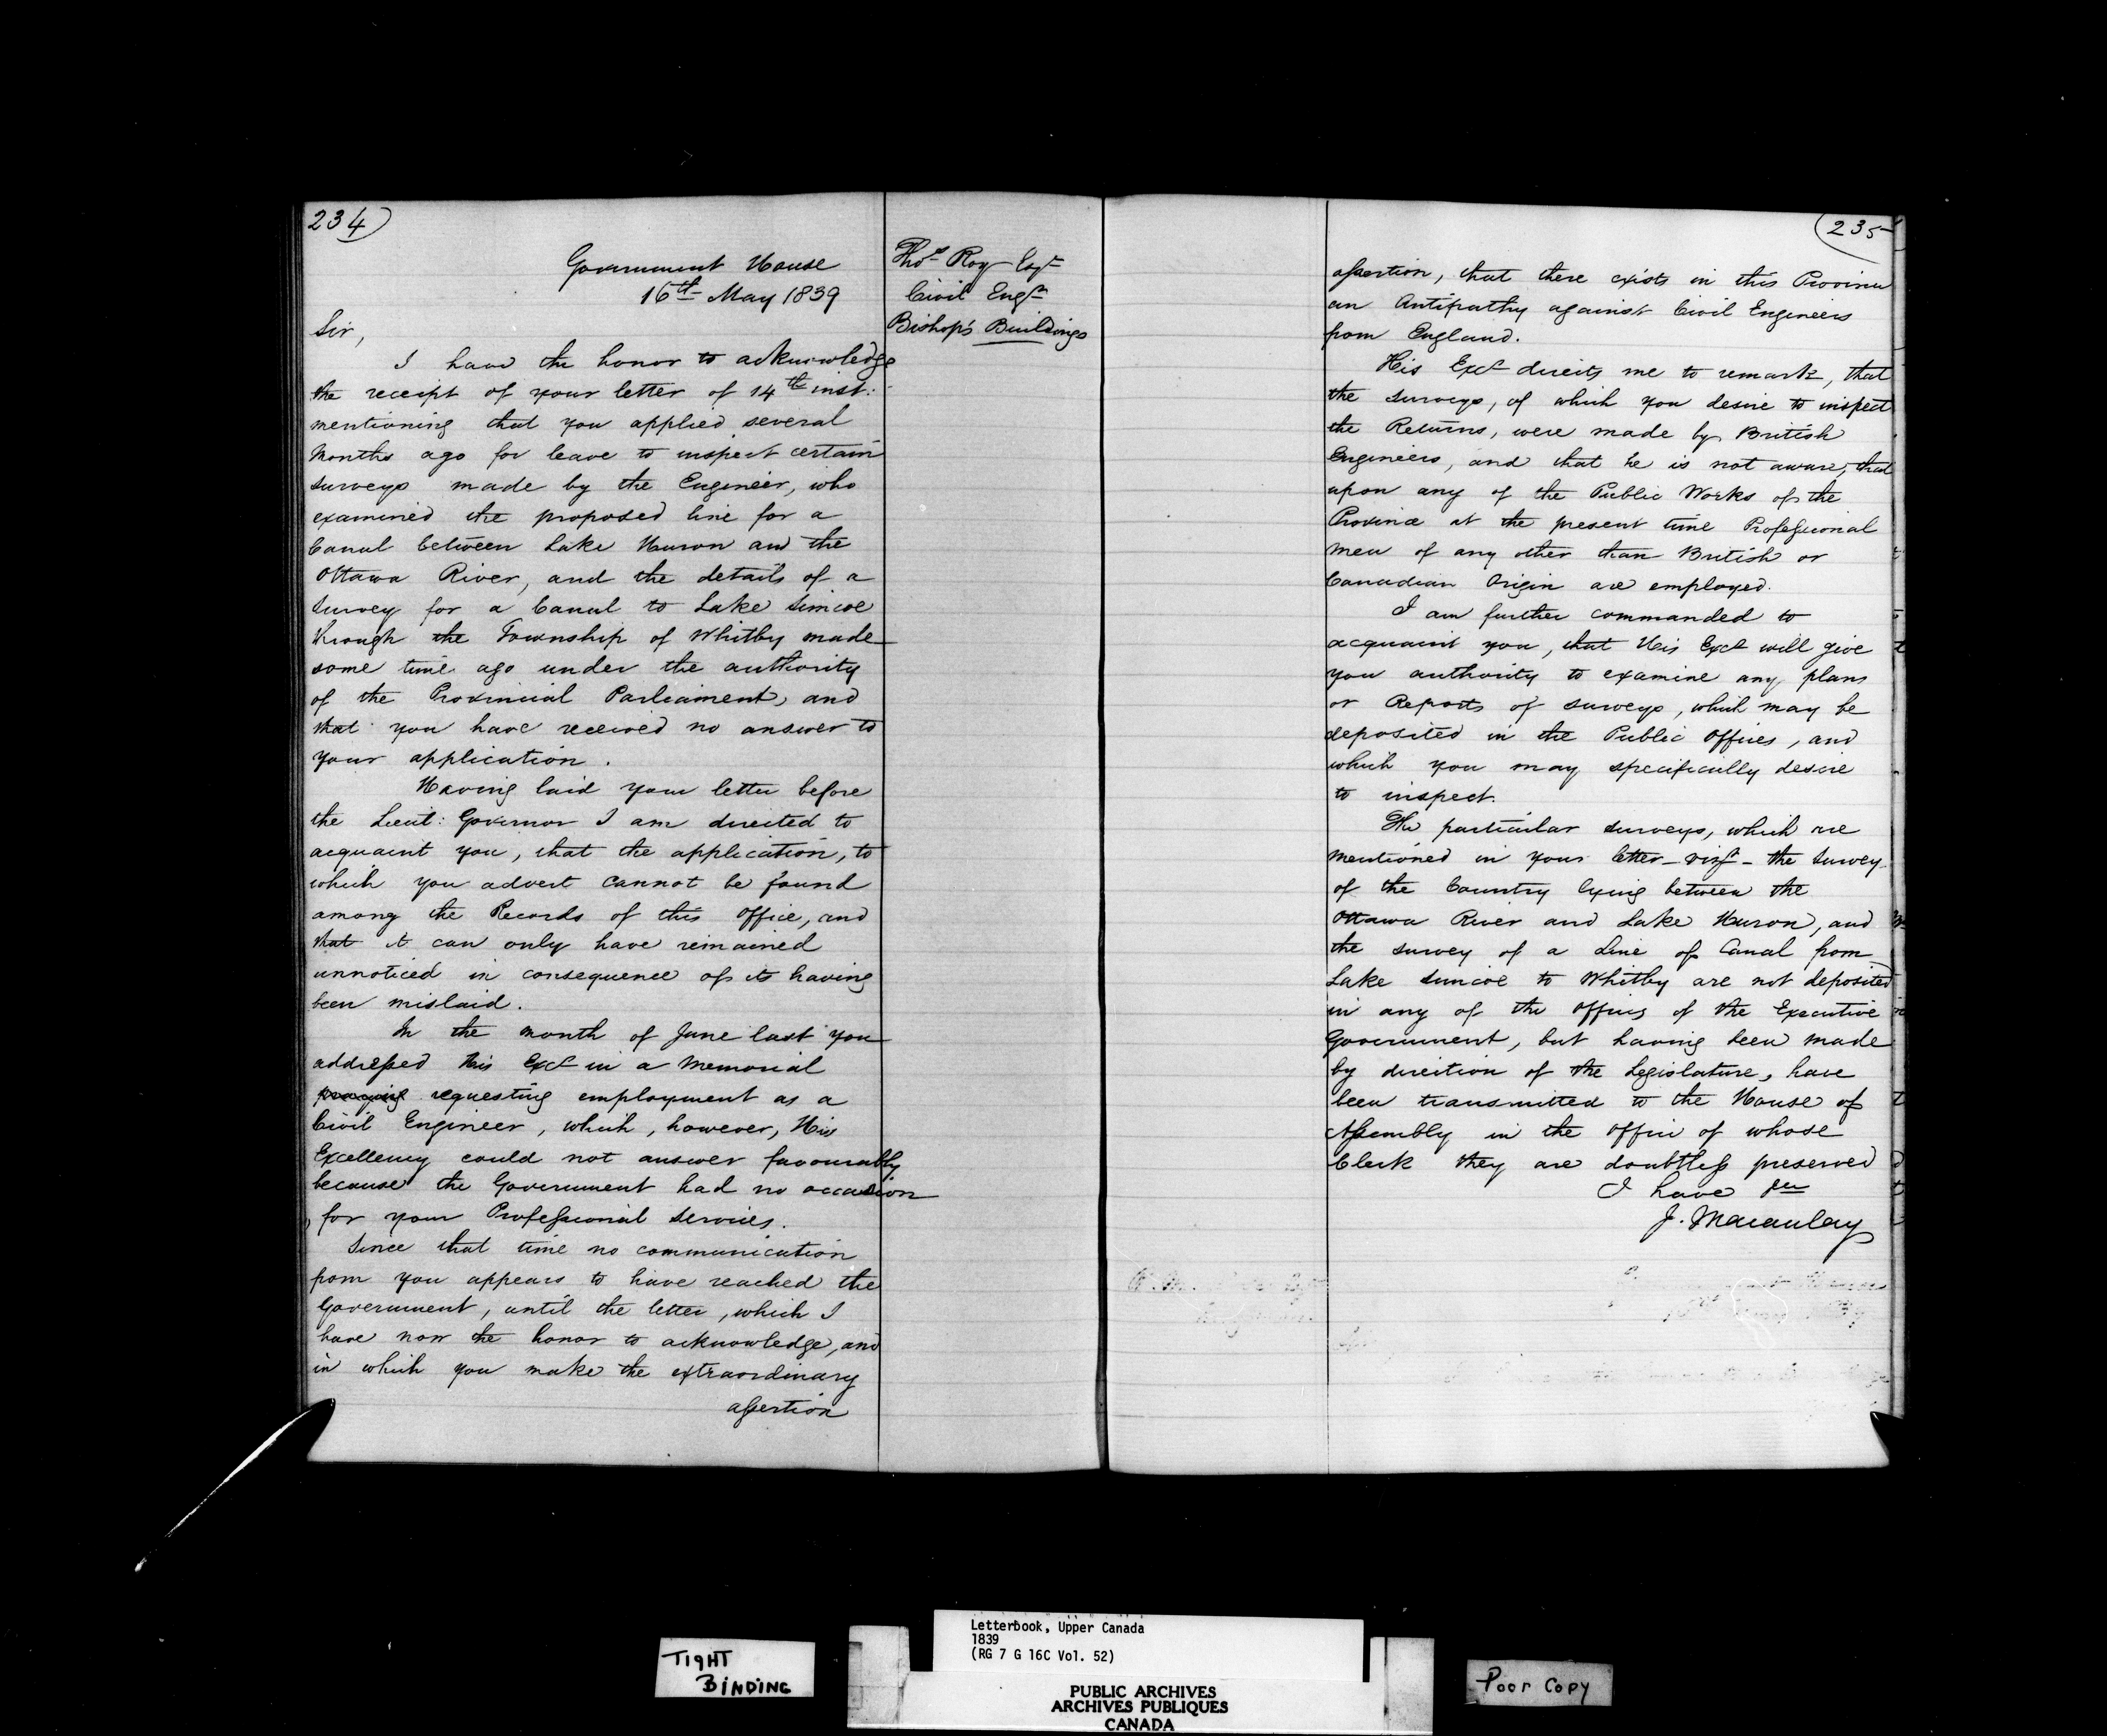 234)
Government House
16th May 1839
Thos Roy Esqr
Civil Engr
Bishop's Buildings
Sir,
I have the honor to acknowledge
the receipt of your letter of 14th inst:
mentioning that you applied several
Months ago for leave to inspect certain
surveys made by the Engineer, who
examined the proposed line for a
Canal between Lake Huron and the
Ottawa River, and the details of a
Survey for a Canal to Lake Simcoe
through the Township of Whitby made
some time ago under the authority
of the Provincial Parliament, and
that you have received no answer to
your application.
Having laid your letter before
the Lieut: Governor I am directed to
acquaint you, that the application, to
which you advert cannot be found
among the Records of this Office, and
that it can only have remained
unnoticed in consequence of its having
been mislaid.
In the month of June last you
addressed His Excy in a Memorial
praying requesting employment as a
Civil Engineer, which, however, His
Excellency could not answer favourably
because the Government had no occasion
for your Professional Services.
Since that time no communication
from you appears to have reached the
Government, until the letter, which I
have now the honor to acknowledge, and
in which you make the extraordinary
assertion
(235
assertion, that there exists in this Province
an Antipathy against Civil Engineers
from England.
His Excy directs me to remark, that
the surveys, of which you desire to inspect
the Returns, were made by British
Engineers, and that he is not aware, that
upon any of the Public Works of the
Province at the present time Professional
Men of any other than British or
Canadian Origin are employed.
I am further commanded to
acquaint you, that His Excy will give
you authority to examine any plans
or Reports of surveys, which may be
deposited in the Public Offices, and
which you may specifically desire
to inspect.
The particular surveys, which are
mentioned in your letter - vizt - the Survey
of the Country lying between the
Ottawa River and Lake Huron, and
the survey of a Line of Canal from
Lake Simcoe to Whitby are not deposited
in any of the Offices of the Executive
Government, but having been made
by direction of the Legislature, have
been transmitted to the House of
Assembly in the Office of whose
Clerk they are doubtless preserved
I have &c
J. Macaulay
Letterbook, Upper Canada
1839
(RG 7 G 16C Vol. 52)
TIGHT
BINDING
PUBLIC ARCHIVES
ARCHIVES PUBLIQUES
CANADA
Poor Copy